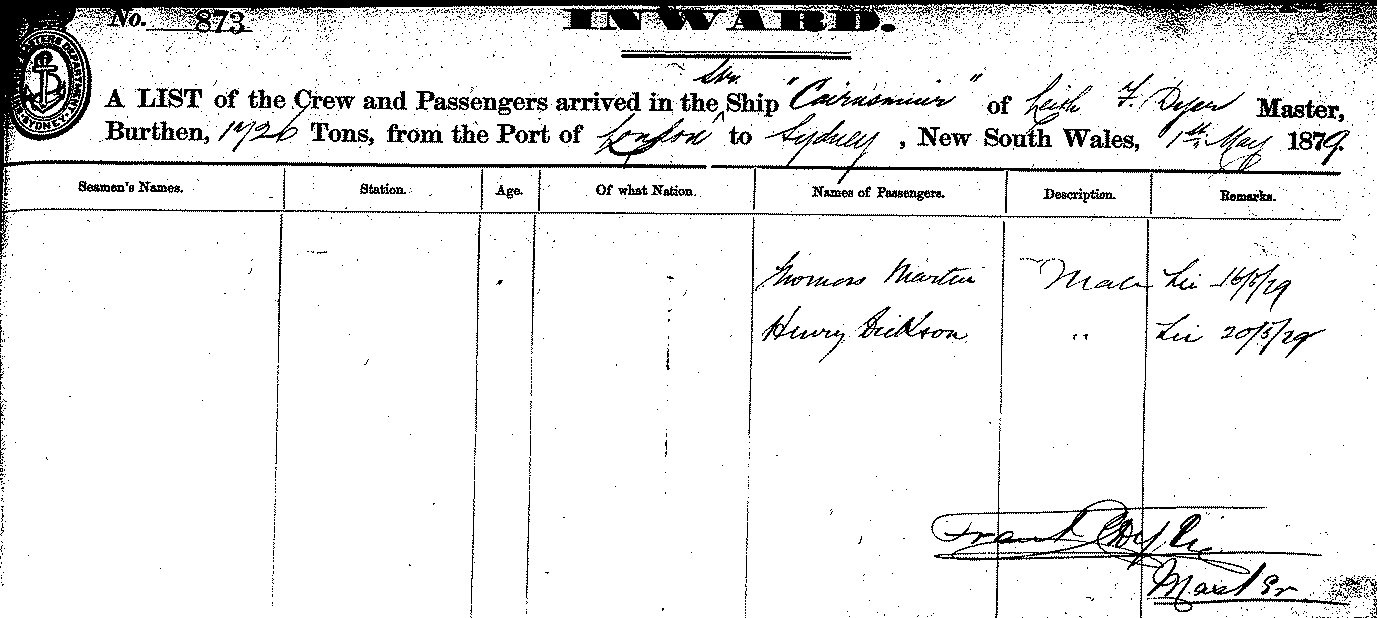 No. 873
INWARD.
A LIST of the Crew and Passengers arrived in the Str. Ship "Cairnsmuir" of Leith F. Dyer Master,
Burthen, 1726 Tons, from the Port of London to Sydney, New South Wales, 1st May 1879.
Seamen's Names. Station. Age. Of what Nation. Names of Passengers. Description. Remarks.
Thomas Martin Male Lic 16/5/79
Henry Dickson " Lic 20/5/79
Frank
Master